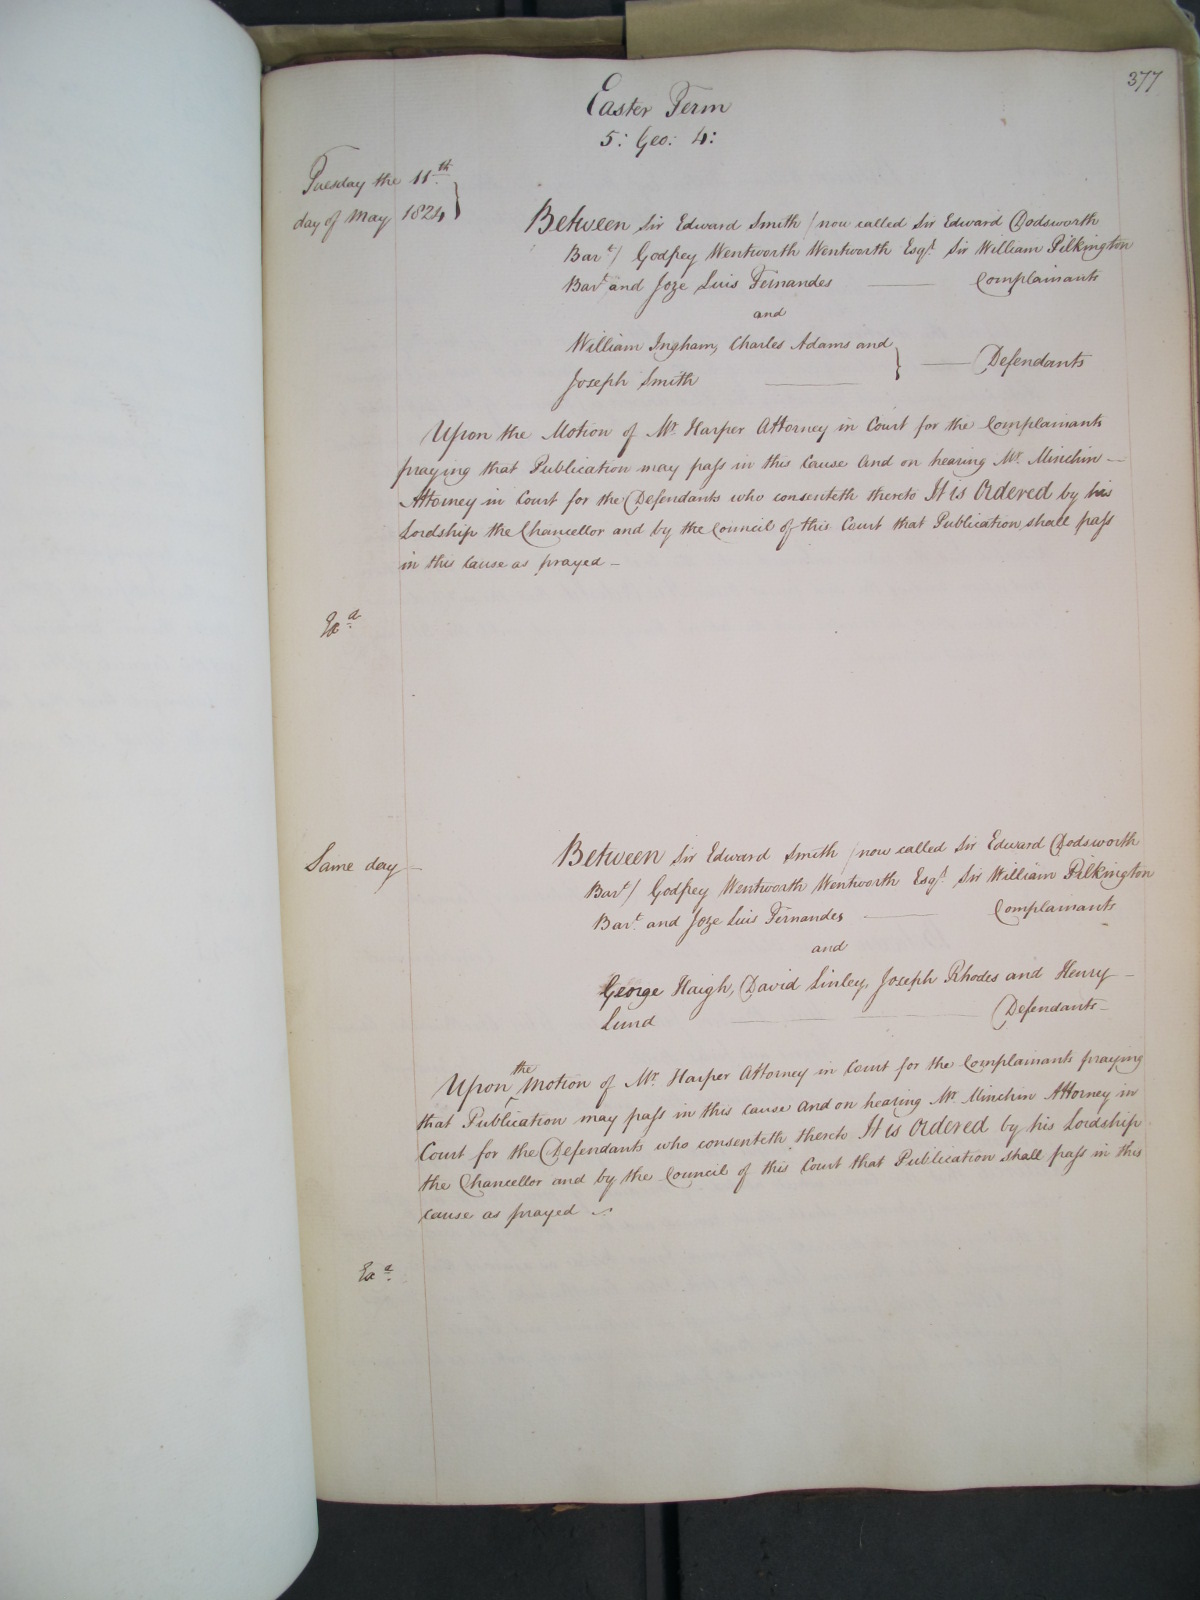 377
Easter Term
5: Geo: 4:
Tuesday the 11th
day of May 1824
Between Sir Edward Smith (now called Sir Edward Dodsworth
Bart) Godfrey Wentworth Wentworth Esqr Sir William Pilkington
Bart and Joze Luis Fernandes Complainants
and
William Ingham, Charles Adams and
Joseph Smith Defendants
Upon the Motion of Mr. Harper Attorney in Court for the Complainants
praying that Publication may pass in this Cause and on hearing Mr. Minchin
Attorney in Court for the Defendants who consenteth thereto It is Ordered by his
Lordship the Chancellor and by the Council of this Court that Publication shall pass
in this Cause as prayed
Exa
Same day
Between Sir Edward Smith (now called Sir Edward Dodsworth
Bart) Godfrey Wentworth Wentworth Esqr Sir William Pilkington
Bart. and Joze Luis Fernandes Complainants
and
George Haigh, David Linley, Joseph Rhodes and Henry
Lund Defendants
Upon the Motion of Mr. Harper Attorney in Court for the Complainants praying
that Publication may pass in this cause and on hearing Mr. Minchin Attorney in
Court for the Defendants who consenteth thereto It is Ordered by his Lordship
the Chancellor and by the Council of this Court that Publication shall pass in this
cause as prayed
Exa